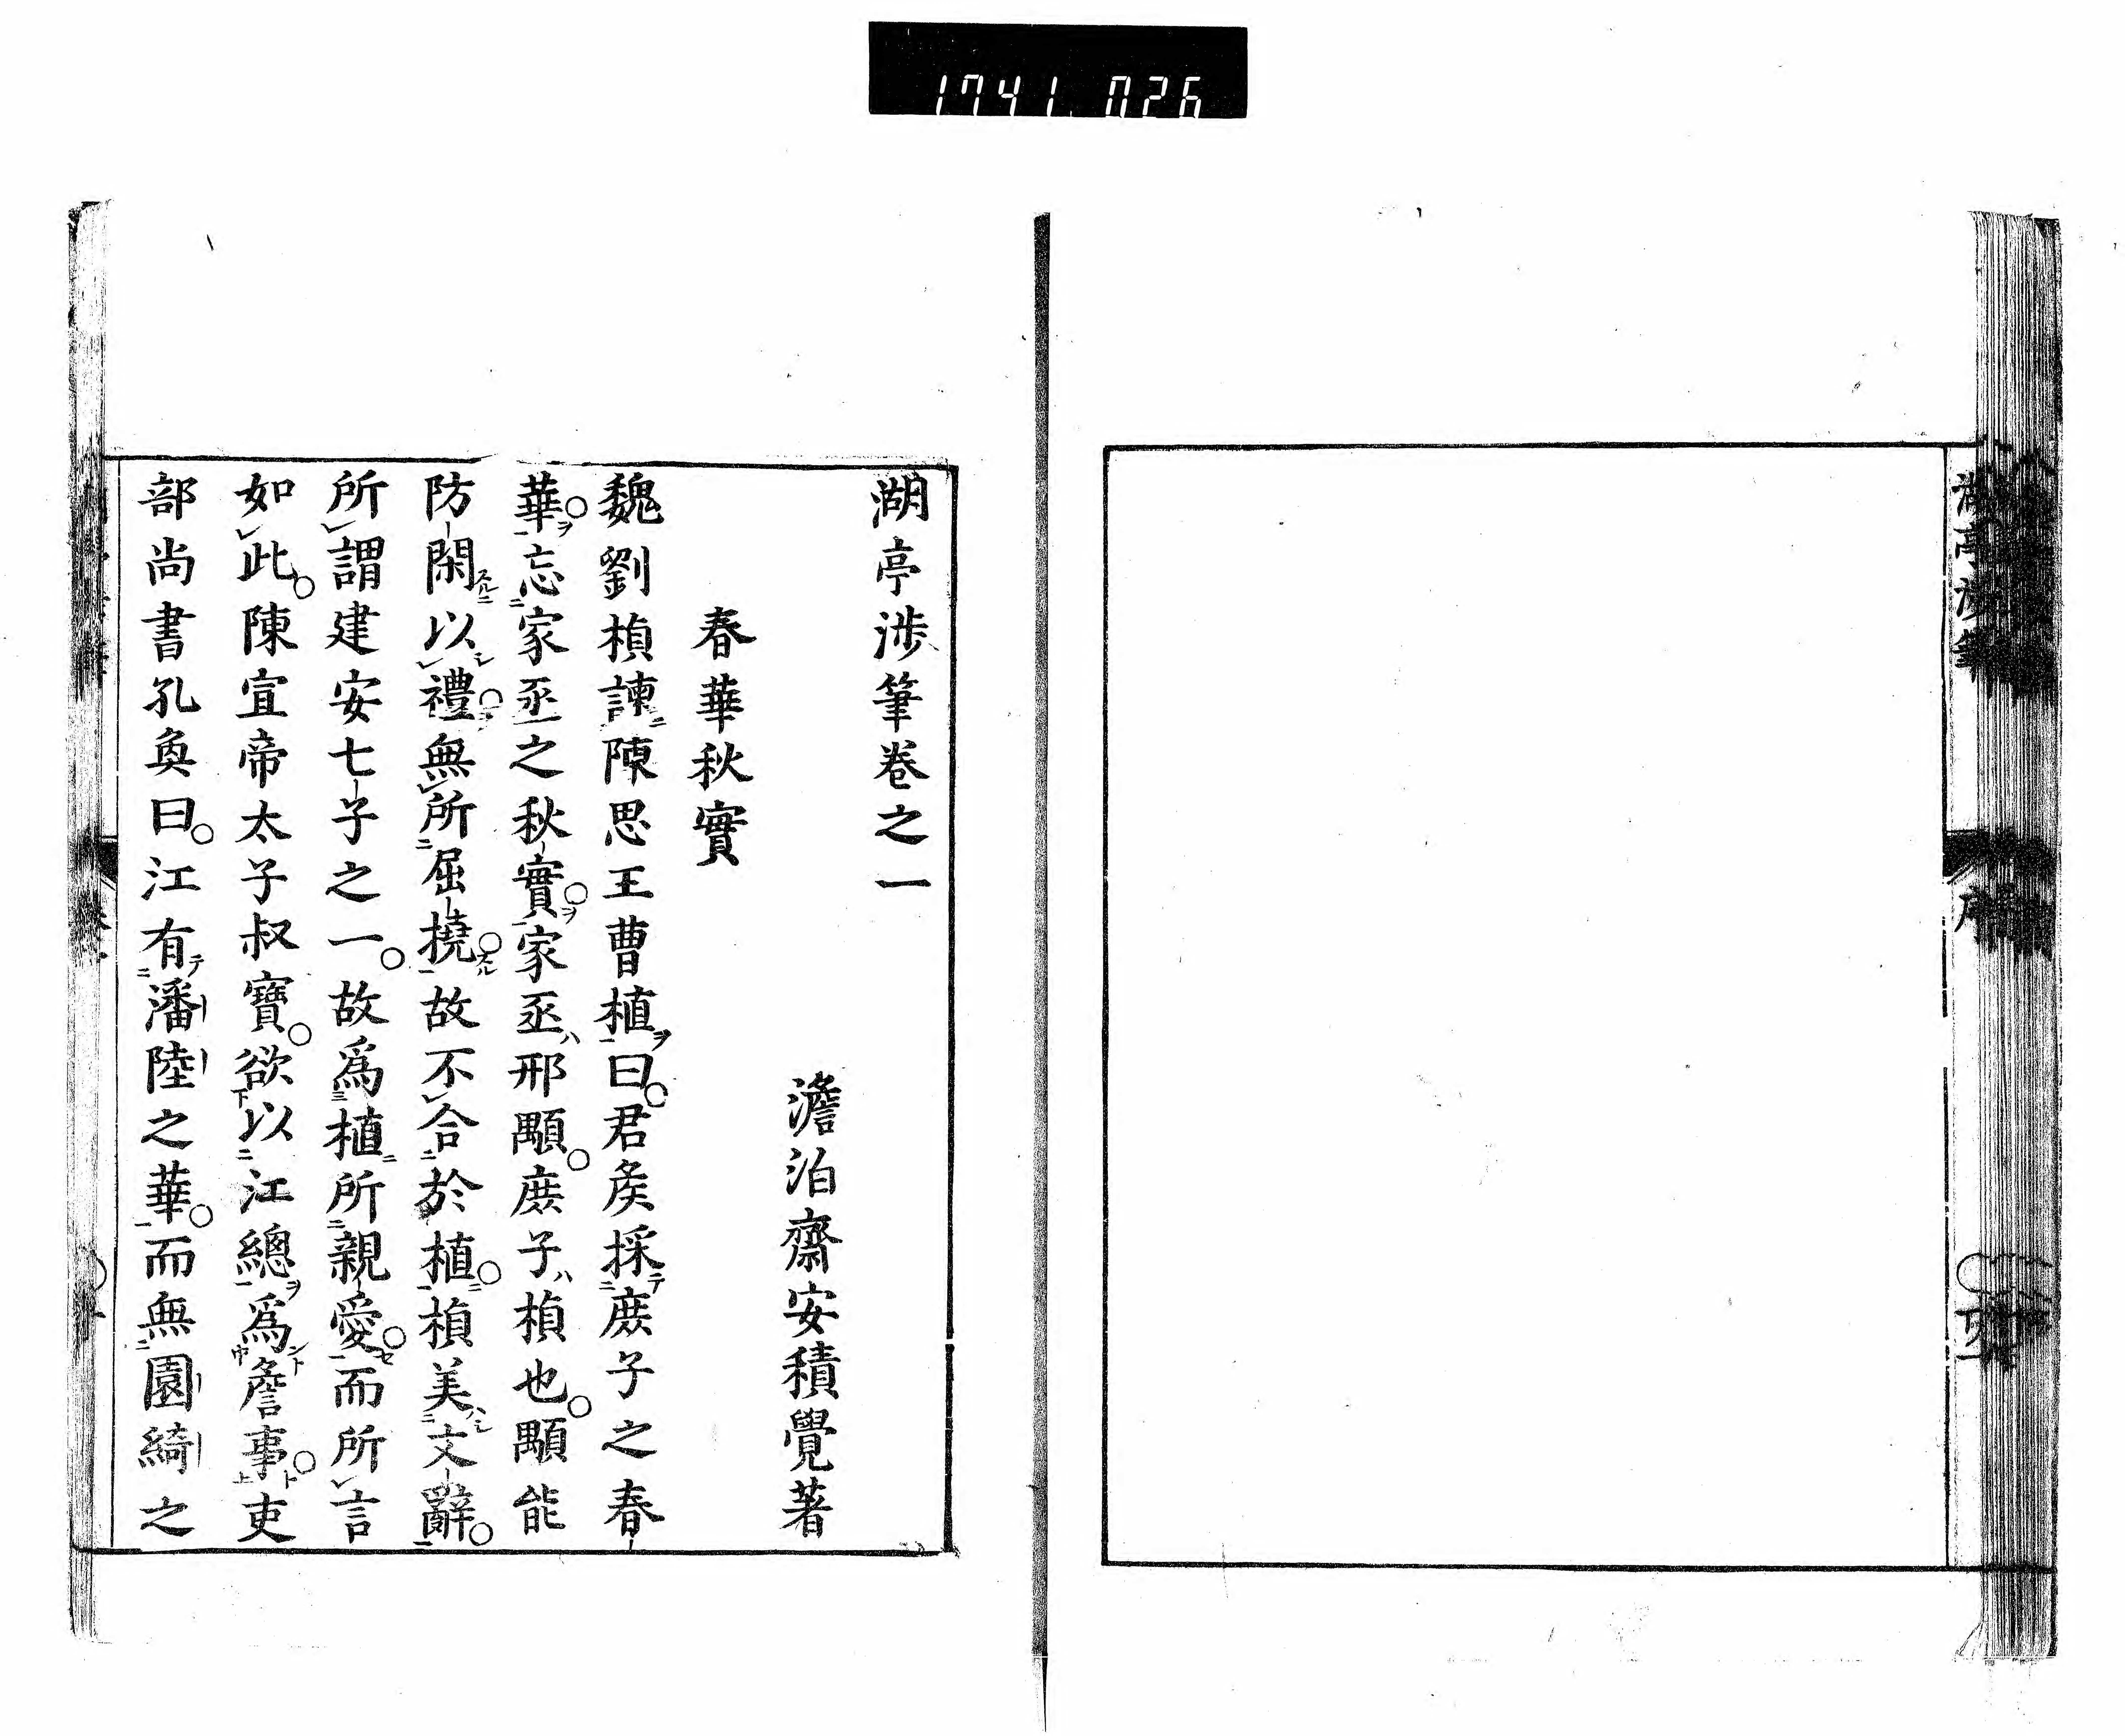 1741 026
湖亭渉筆卷之一
澹泊齋安積覺著
春華秋實
魏劉楨諫陳思王曹植曰君矦採庻子之春
華忘家丞之秋實家丞邢顒庻子楨也顒能
防閑以禮無所屈撓故不合於植楨美文辭
所謂建安七子之一故爲植所親愛而所言
如此陳宣帝太子叔寶欲以江總爲詹事吏
部尚書孔奐曰江有潘陸之華而無園綺之